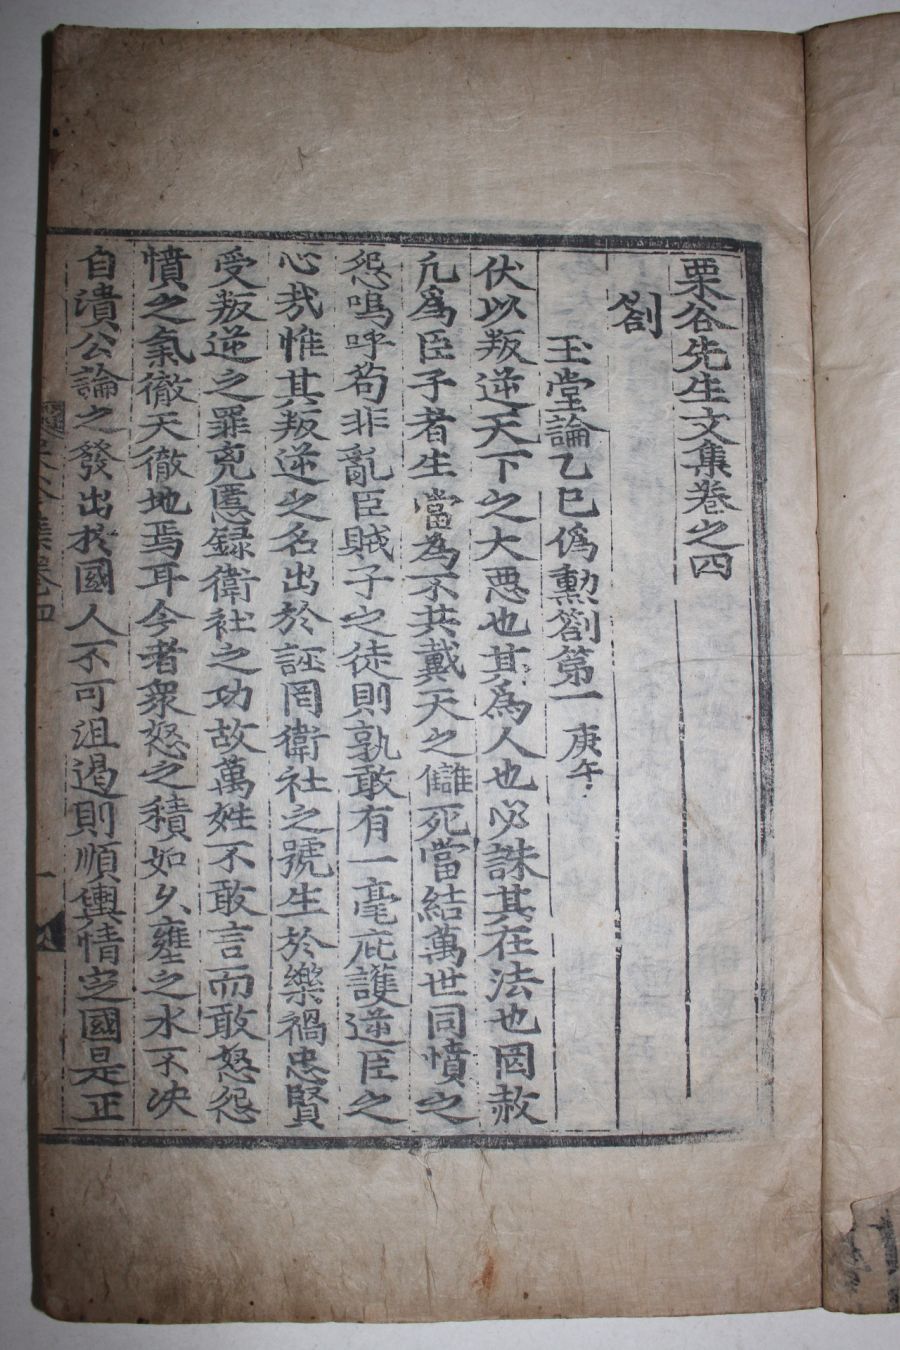 栗谷先生文集卷之四
劄
玉堂論乙巳僞勳劄第一 庚午
伏以叛逆天下之大惡也其爲人也必誅其在法也罔赦
凡爲臣子者生當爲不共戴天之讎死當結萬世同憤之
怨嗚呼苟非亂臣賊子之徒則孰敢有一毫庇護逆臣之
心哉惟其叛逆之名出於誣罔衛社之號生於樂禍忠賢
受叛逆之罪兇慝錄衛社之功故萬姓不敢言而敢怒怨
憤之氣徹天徹地焉耳今者衆怒之積如久壅之水不決
自潰公論之發出於國人不可沮遏則順輿情定國是正